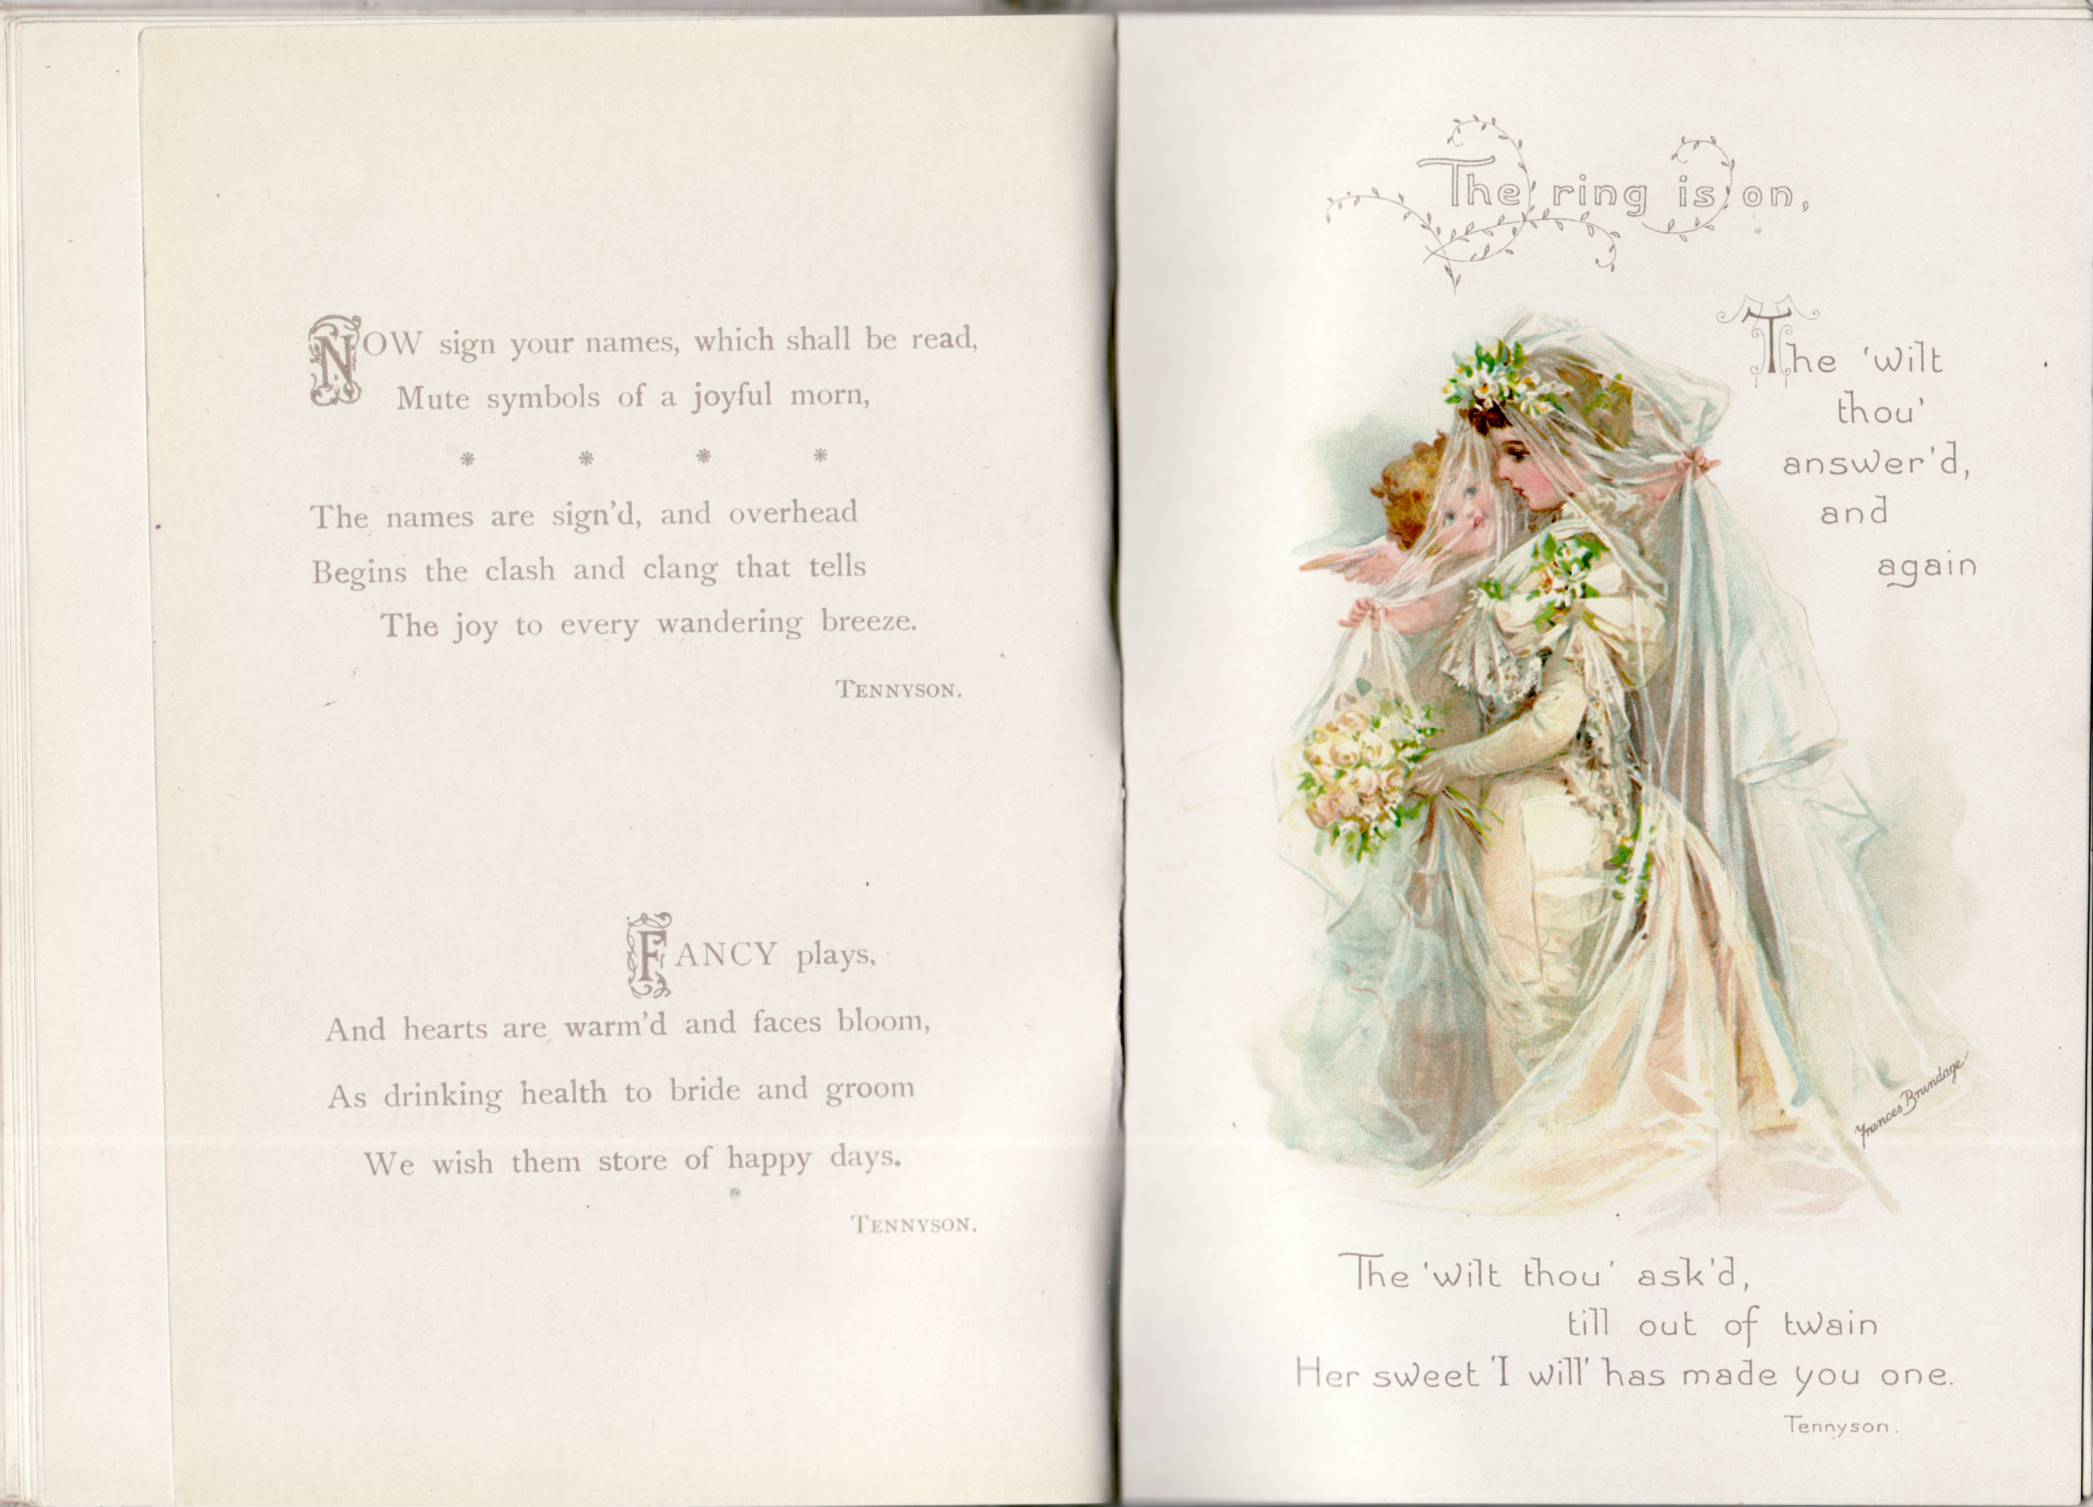 NOW sign your names, which shall be read,
Mute symbols of a joyful morn,
* * * *
The names are sign'd, and overhead
Begins the clash and clang that tells
The joy to every wandering breeze.
TENNYSON.
FANCY plays,
And hearts are warm'd and faces bloom,
As drinking health to bride and groom
We wish them store of happy days.
TENNYSON.
The ring is on,
The 'wilt
thou'
answer'd,
and
again
Frances Brundage
The 'wilt thou' ask'd,
till out of twain
Her sweet 'I will' has made you one.
Tennyson.